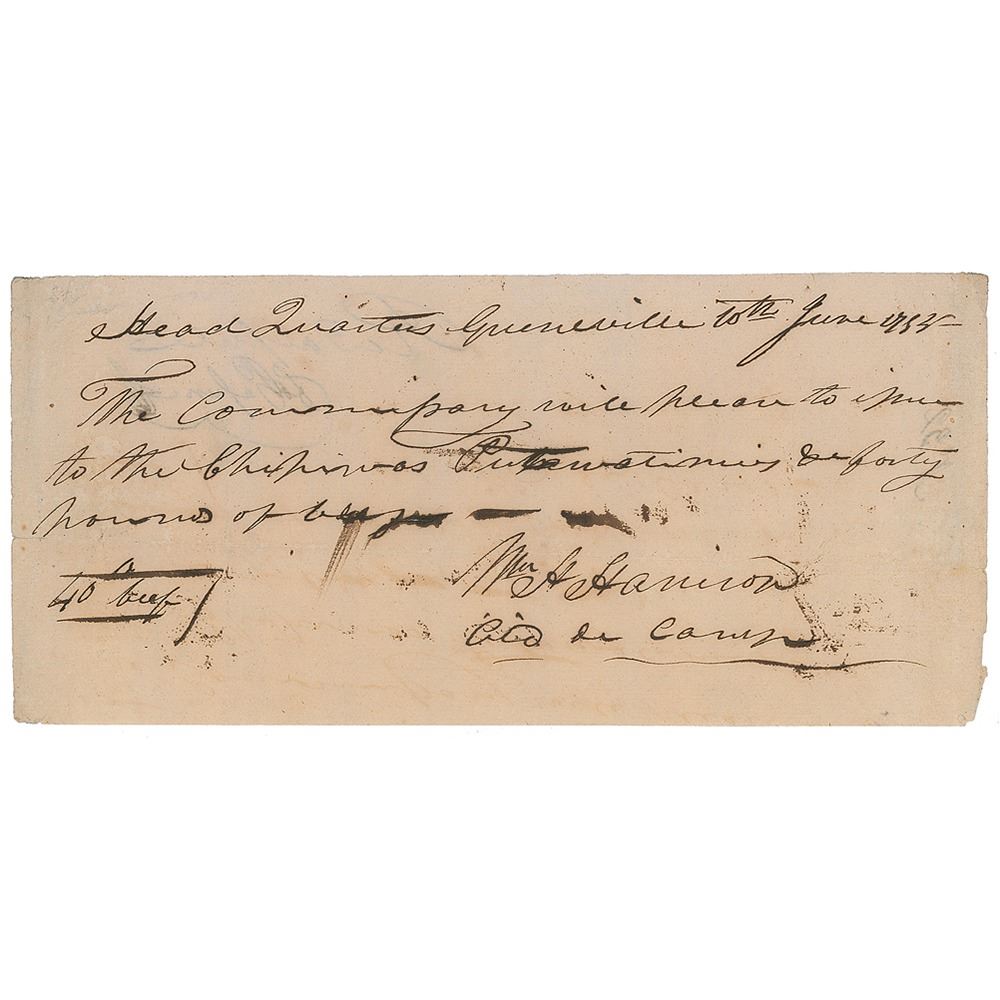 Head Quarters Greneville 10th June 1795
The Commissary will please to issue
to the Chipiwas Putawatimies &c forty
pounds of beef
40 lb beef
Wm H Harrison
Aid de Camp